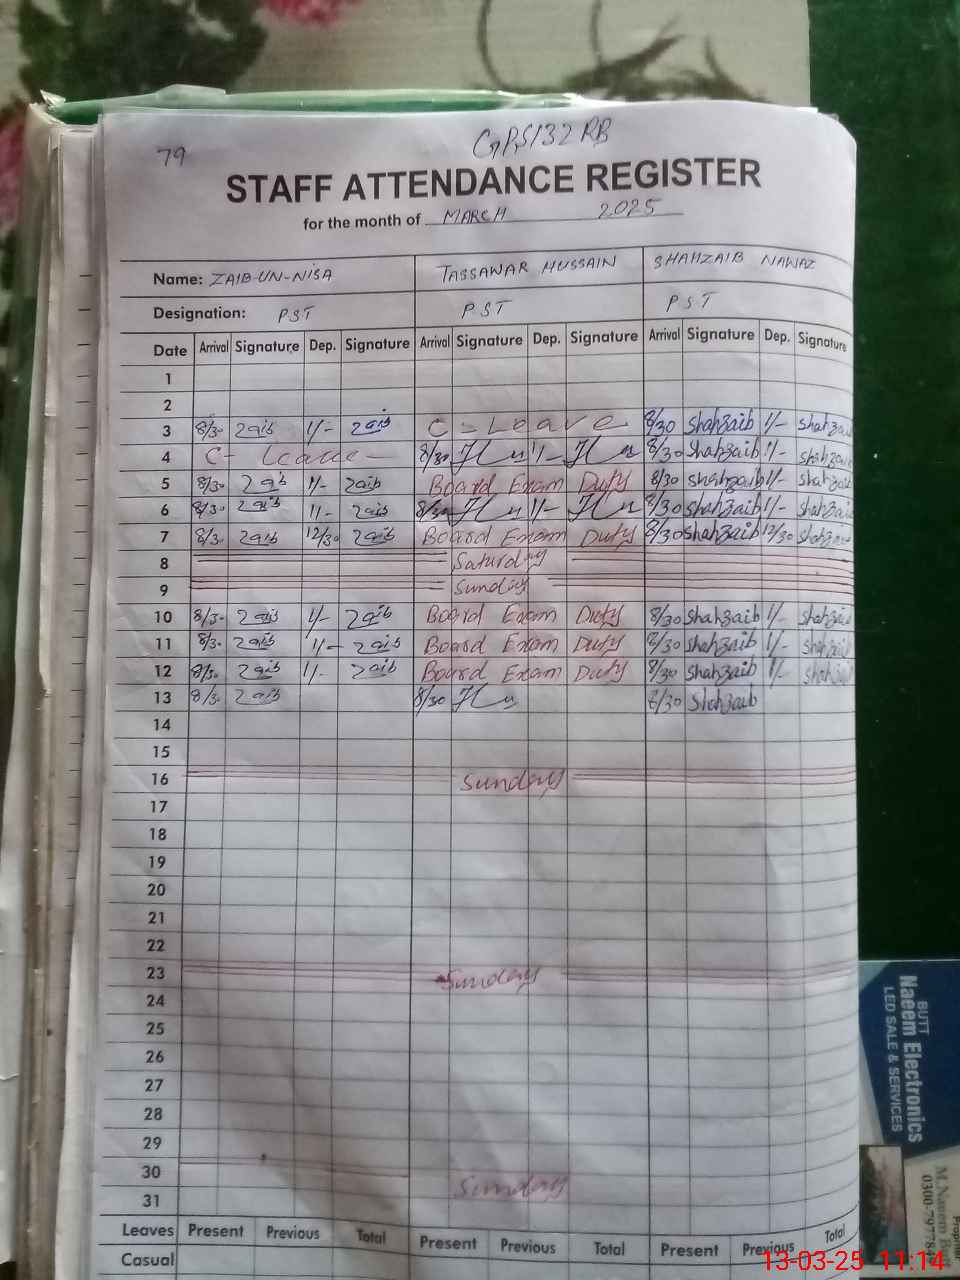 79
GPS 132 RB
STAFF ATTENDANCE REGISTER
for the month of MARCH 2025
Name: ZAIB-UN-NISA TASSAWAR HUSSAIN SHAHZAIB NAWAZ
Designation: PST PST PST
Date Arrival Signature Dep. Signature Arrival Signature Dep. Signature Arrival Signature Dep. Signature
1
2
3 8/30 Zaib 1/- Zaib C-Leave 8/30 Shahzaib 1/- Shahzaib
4 C-Leave 8/30 1/- 8/30 Shahzaib 1/- Shahzaib
5 8/30 Zaib 1/- Zaib Board Exam Duty 8/30 Shahzaib 1/- Shahzaib
6 8/30 Zaib 1/- Zaib 8/30 1/- 8/30 Shahzaib 1/- Shahzaib
7 8/30 Zaib 12/30 Zaib Board Exam Duty 8/30 Shahzaib 12/30 Shahzaib
8 Saturday
9 Sunday
10 8/30 Zaib 1/- Zaib Board Exam Duty 8/30 Shahzaib 1/- Shahzaib
11 8/30 Zaib 1/- Zaib Board Exam Duty 8/30 Shahzaib 1/- Shahzaib
12 8/30 Zaib 1/- Zaib Board Exam Duty 8/30 Shahzaib 1/- Shahzaib
13 8/30 Zaib 8/30 8/30 Shahzaib
14
15
16 Sunday
17
18
19
20
21
22
23 Sunday
24
25
26
27
28
29
30 Sunday
31
Leaves Present Previous Total Present Previous Total Present Previous Total
Casual
BUTT
Naeem Electronics
LED SALE & SERVICES
M.Naeem
13-03-25 11:14